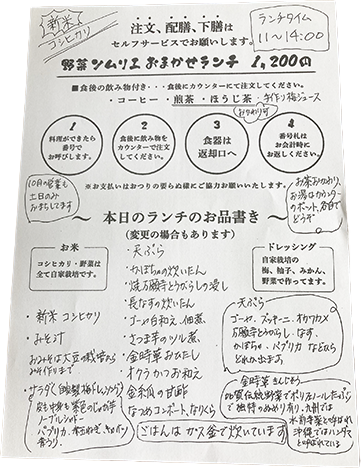 新米
コシヒカリ
注文、配膳、下膳は
セルフサービスでお願いします。
ランチタイム
11～14:00
野菜ソムリエ おまかせランチ 1,200円
■食後の飲み物付き・・・食後にカウンターにて注文してください。
・コーヒー・煎茶・ほうじ茶・手作り梅ジュース
おかわり可
1
料理ができたら
番号で
お呼びします。
2
食後に飲み物を
カウンターで注文
してください。
3
食器は
返却口へ
4
番号札は
お会計時に
お返しください。
※お支払いはおつりの要らぬ様にご協力お願いいたします。
10月の営業も
土日のみ
おまちしてます
お茶おかわり、
お湯はカウンター
のポット、各自で
どうぞ
～ 本日のランチのお品書き ～
（変更の場合もあります）
お米
コシヒカリ・野菜は
全て自家栽培です。
ドレッシング
自家栽培の
梅、柚子、みかん、
野菜で作ってます。
・天ぷら
・かぼちゃの炊いたん
・焼万願寺とうがらしの浸し
・長なすの炊いたん
・ゴーヤ白和え、佃煮
・さつま芋のツル煮
・金時草おひたし
・オクラかつお和え
金糸瓜の甘酢
なつめコンポート、なりくら
ごはんはガス釜で炊いています
・新米 コシヒカリ
・みそ汁
おみそは大豆の栽培から
みそ作りまで
・サラダ（自家製梅ドレッシング）
天ぷら
ゴーヤ、ズッキーニ、オカワカメ
万願寺とうがらし、なす、
かぼちゃ、パプリカ などから
どれか出ます
金時草 きんじそう
加賀伝統野菜でポリフェノールたっぷり
で独特のぬめり有り。九州では
水前寺菜と呼ばれ
沖縄ではハンダマ
と呼ばれている